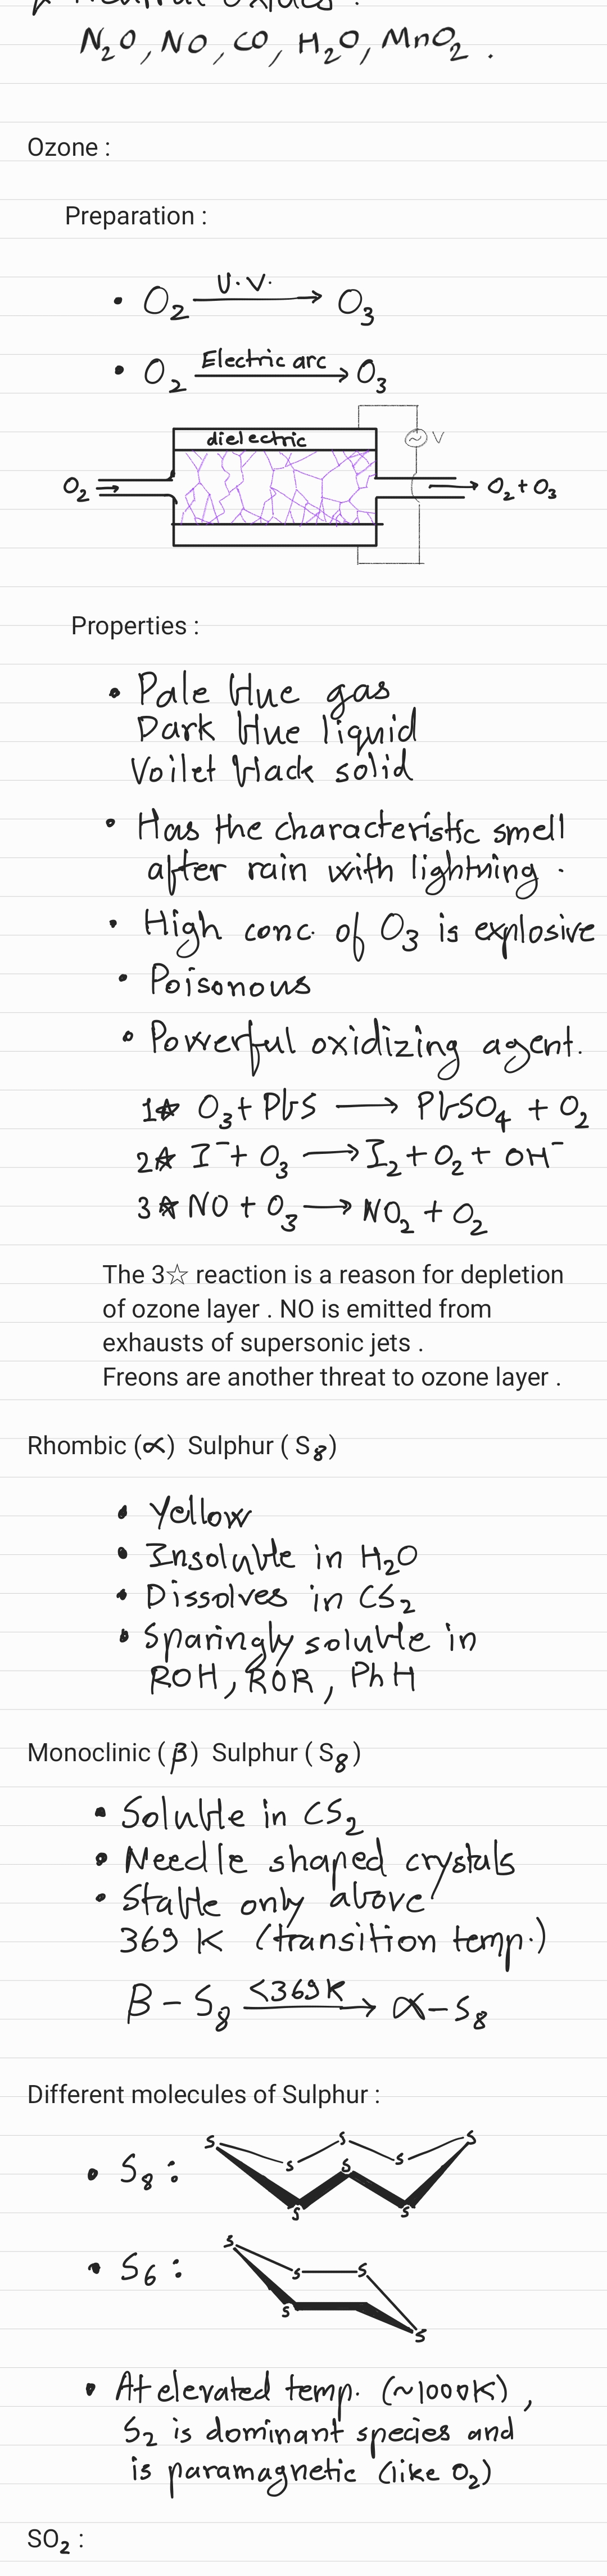 Neutral oxides :
N₂O, NO, CO, H₂O, MnO₂ .
Ozone :
Preparation :
• O₂ —U.V.→ O₃
• O₂ —Electric arc→ O₃
dielectric
V
O₂ → → O₂ + O₃
Properties :
• Pale blue gas
Dark blue liquid
Voilet black solid
• Has the characteristic smell
after rain with lightning .
• High conc. of O₃ is explosive
• Poisonous
• Powerful oxidizing agent.
1☆ O₃ + PbS → PbSO₄ + O₂
2☆ I⁻ + O₃ → I₂ + O₂ + OH⁻
3☆ NO + O₃ → NO₂ + O₂
The 3☆ reaction is a reason for depletion
of ozone layer . NO is emitted from
exhausts of supersonic jets .
Freons are another threat to ozone layer .
Rhombic (α) Sulphur ( S₈)
• Yellow
• Insoluble in H₂O
• Dissolves in CS₂
• Sparingly soluble in
ROH, ROR, PhH
Monoclinic (β) Sulphur ( S₈)
• Soluble in CS₂
• Needle shaped crystals
• Stable only above
369 K (transition temp.)
β – S₈ —<369K→ α–S₈
Different molecules of Sulphur :
• S₈ :
S S S
S S
S
S S
• S₆ :
S
S S
S
S
• At elevated temp. (~1000K) ,
S₂ is dominant species and
is paramagnetic (like O₂)
SO₂ :